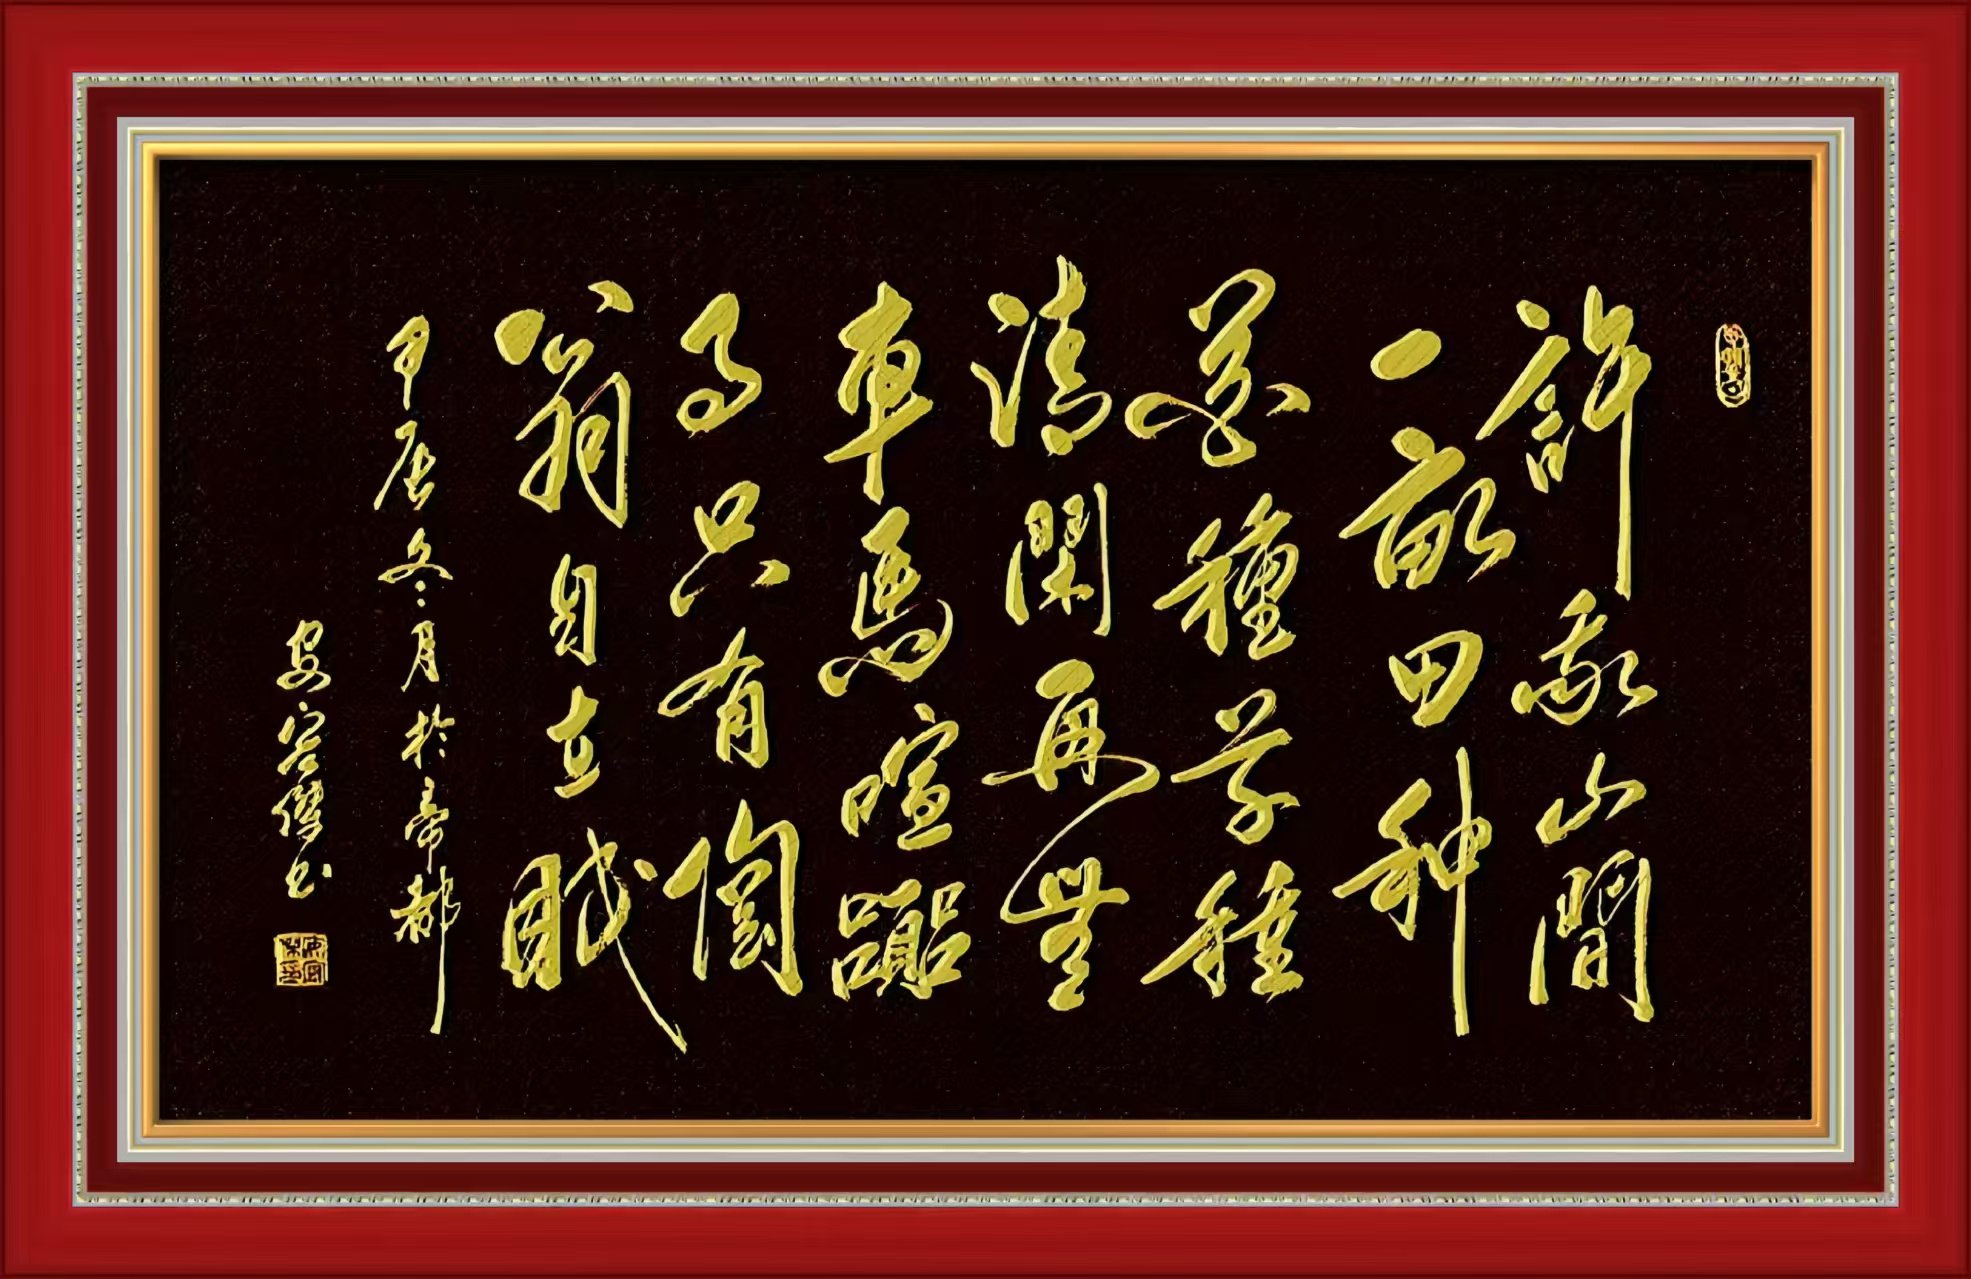 許我山間
一畝田种
花種草種
清閑再無
車馬喧囂
事只有陶
翁自在眠
甲辰冬月於帝都
安书